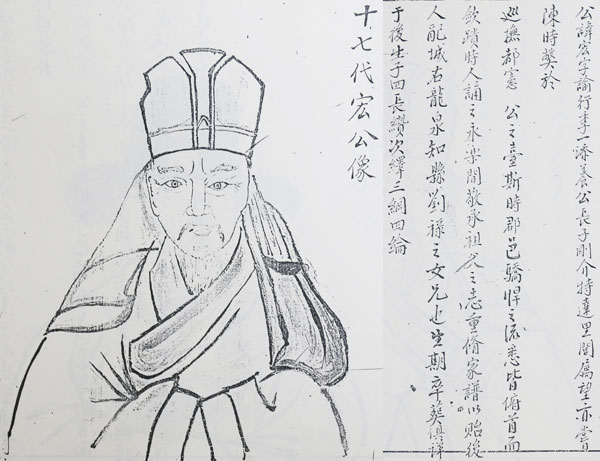 公諱宏字諭行季一添養公長子剛介特達里閭屬望亦嘗
陳時獘於
巡撫都憲 公之臺斯時郡邑驕悍之流悉皆俯首而
斂蹟時人誦之永樂間敬承祖父之志重脩家譜以貽後
人配城右龍泉知縣劉祿之女兄也生期卒葬俱詳
于後生子四長纘次繹三綱四綸
十七代宏公像